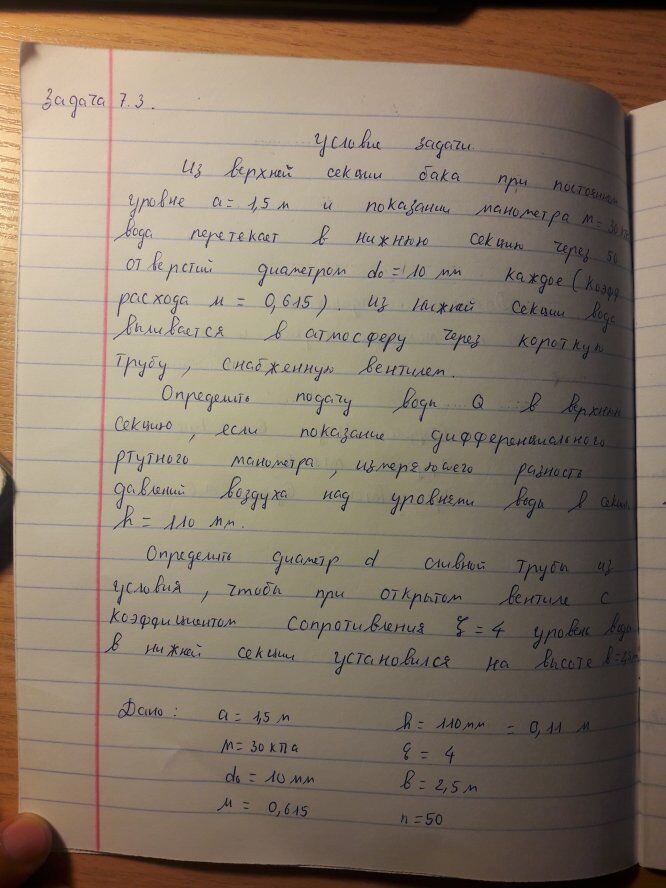 Задача 7.3.
Условие задачи.
Из верхней секции бака при постоянном
уровне a = 1,5 м и показании манометра м = 30 кПа
вода перетекает в нижнюю секцию через 50
отверстий диаметром d₀ = 10 мм каждое (коэфф
расхода м = 0,615). Из нижней секции вода
выливается в атмосферу через короткую
трубу, снабженную вентилем.
Определить подачу воды Q в верхнюю
секцию, если показание дифференциального
ртутного манометра, измеряющего разность
давлений воздуха над уровнями воды в секц
h = 110 мм.
Определить диаметр d сливной трубы из
условия, чтобы при открытом вентиле с
коэффициентом сопротивления ξ = 4 уровень воды
в нижней секции установился на высоте в = 2,5 м
Дано: a = 1,5 м h = 110 мм = 0,11 м
м = 30 кПа ξ = 4
d₀ = 10 мм в = 2,5 м
м = 0,615 n = 50